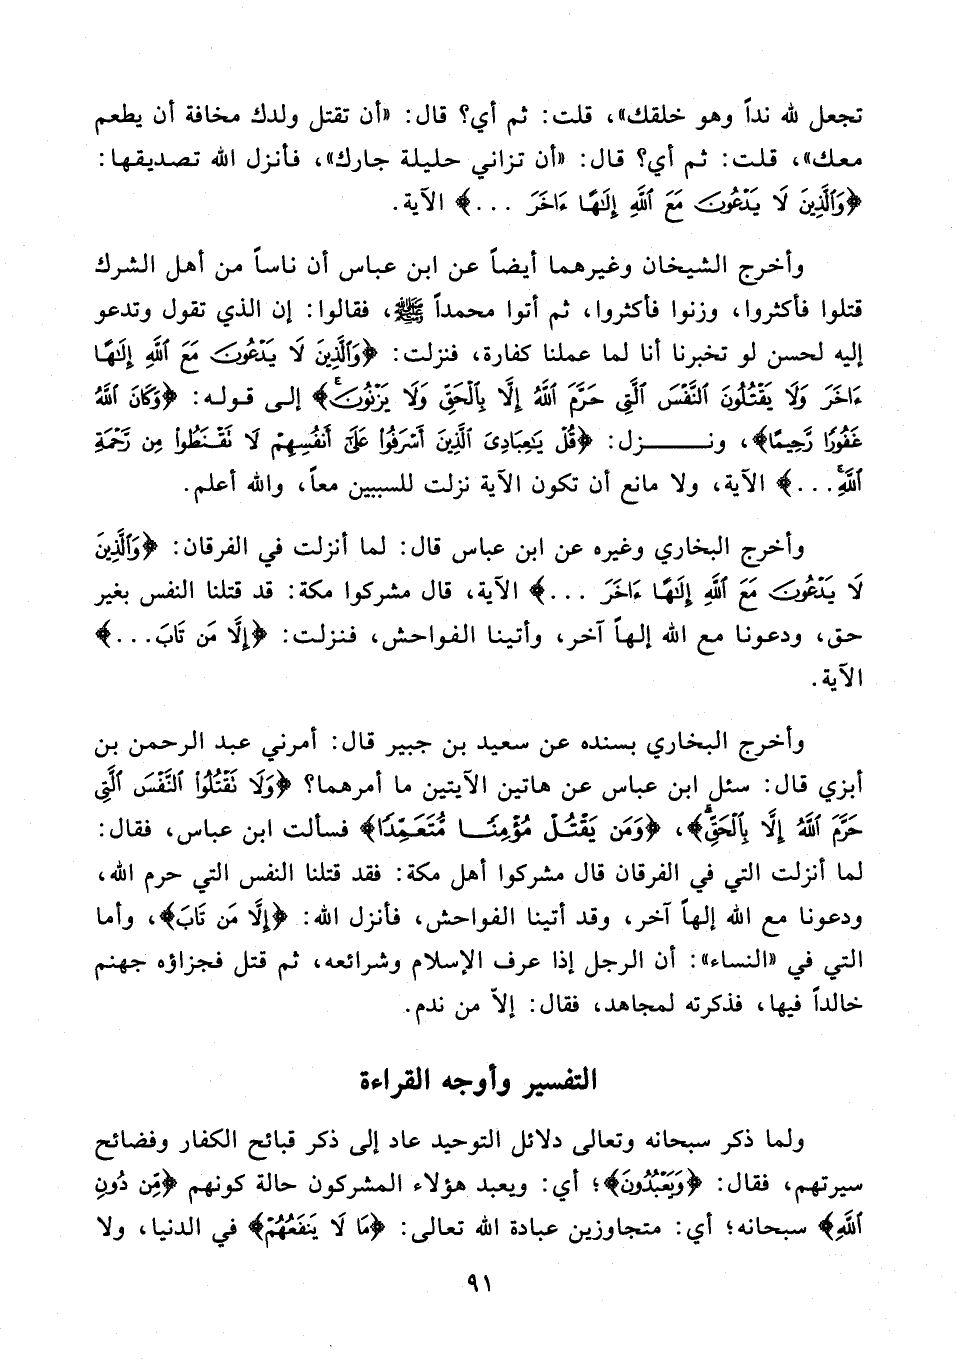 تجعل لله نداً وهو خلقك»، قلت: ثم أي؟ قال: «أن تقتل ولدك مخافة أن يطعم
معك»، قلت: ثم أي؟ قال: «أن تزاني حليلة جارك»، فأنزل الله تصديقها:
﴿وَٱلَّذِينَ لَا يَدْعُونَ مَعَ ٱللَّهِ إِلَٰهًا ءَاخَرَ ...﴾ الآية.
وأخرج الشيخان وغيرهما أيضاً عن ابن عباس أن ناساً من أهل الشرك
قتلوا فأكثروا، وزنوا فأكثروا، ثم أتوا محمداً ﷺ، فقالوا: إن الذي تقول وتدعو
إليه لحسن لو تخبرنا أنا لما عملنا كفارة، فنزلت: ﴿وَٱلَّذِينَ لَا يَدْعُونَ مَعَ ٱللَّهِ إِلَٰهًا
ءَاخَرَ وَلَا يَقْتُلُونَ ٱلنَّفْسَ ٱلَّتِي حَرَّمَ ٱللَّهُ إِلَّا بِٱلْحَقِّ وَلَا يَزْنُونَۚ﴾ إلى قوله: ﴿وَكَانَ ٱللَّهُ
غَفُورًا رَّحِيمًا﴾، ونــزل: ﴿قُلْ يَٰعِبَادِىَ ٱلَّذِينَ أَسْرَفُوا۟ عَلَىٰٓ أَنفُسِهِمْ لَا تَقْنَطُوا۟ مِن رَّحْمَةِ
ٱللَّهِۚ...﴾ الآية، ولا مانع أن تكون الآية نزلت للسببين معاً، والله أعلم.
وأخرج البخاري وغيره عن ابن عباس قال: لما أنزلت في الفرقان: ﴿وَٱلَّذِينَ
لَا يَدْعُونَ مَعَ ٱللَّهِ إِلَٰهًا ءَاخَرَ ...﴾ الآية، قال مشركوا مكة: قد قتلنا النفس بغير
حق، ودعونا مع الله إلهاً آخر، وأتينا الفواحش، فنزلت: ﴿إِلَّا مَن تَابَ...﴾
الآية.
وأخرج البخاري بسنده عن سعيد بن جبير قال: أمرني عبد الرحمن بن
أبزي قال: سئل ابن عباس عن هاتين الآيتين ما أمرهما؟ ﴿وَلَا تَقْتُلُوا۟ ٱلنَّفْسَ ٱلَّتِي
حَرَّمَ ٱللَّهُ إِلَّا بِٱلْحَقِّۗ﴾، ﴿وَمَن يَقْتُلْ مُؤْمِنًا مُّتَعَمِّدًا﴾ فسألت ابن عباس، فقال:
لما أنزلت التي في الفرقان قال مشركوا أهل مكة: فقد قتلنا النفس التي حرم الله،
ودعونا مع الله إلهاً آخر، وقد أتينا الفواحش، فأنزل الله: ﴿إِلَّا مَن تَابَ﴾، وأما
التي في «النساء»: أن الرجل إذا عرف الإسلام وشرائعه، ثم قتل فجزاؤه جهنم
خالداً فيها، فذكرته لمجاهد، فقال: إلاّ من ندم.
التفسير وأوجه القراءة
ولما ذكر سبحانه وتعالى دلائل التوحيد عاد إلى ذكر قبائح الكفار وفضائح
سيرتهم، فقال: ﴿وَيَعْبُدُونَ﴾؛ أي: ويعبد هؤلاء المشركون حالة كونهم ﴿مِن دُونِ
ٱللَّهِ﴾ سبحانه؛ أي: متجاوزين عبادة الله تعالى: ﴿مَا لَا يَنفَعُهُمْ﴾ في الدنيا، ولا
٩١